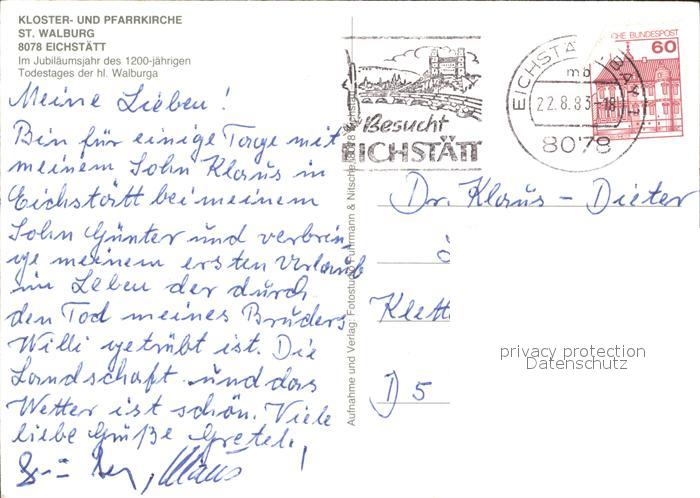 KLOSTER- UND PFARRKIRCHE
ST. WALBURG
8078 EICHSTÄTT
Im Jubiläumsjahr des 1200-jährigen
Todestages der hl. Walburga
Meine Lieben!
Bin für einige Tage mit
meinem Sohn Klaus in
Eichstätt bei meinem
Sohn Günter und verbrin-
ge meinem ersten Urlaub
im Leben der durch
den Tod meines Bruders
Willi getrübt ist. Die
Landschaft und das
Wetter ist schön. Viele
liebe Grüße Gretel,
Klaus!
Aufnahme und Verlag: Fotostudio Fuhrmann & Nitsche, 8078 Eichstätt
Besucht
EICHSTÄTT
EICHSTÄTT
mb
22.8.83-18
8078
DEUTSCHE BUNDESPOST
60
Dr. Klaus-Dieter
Klett
D 5
privacy protection
Datenschutz